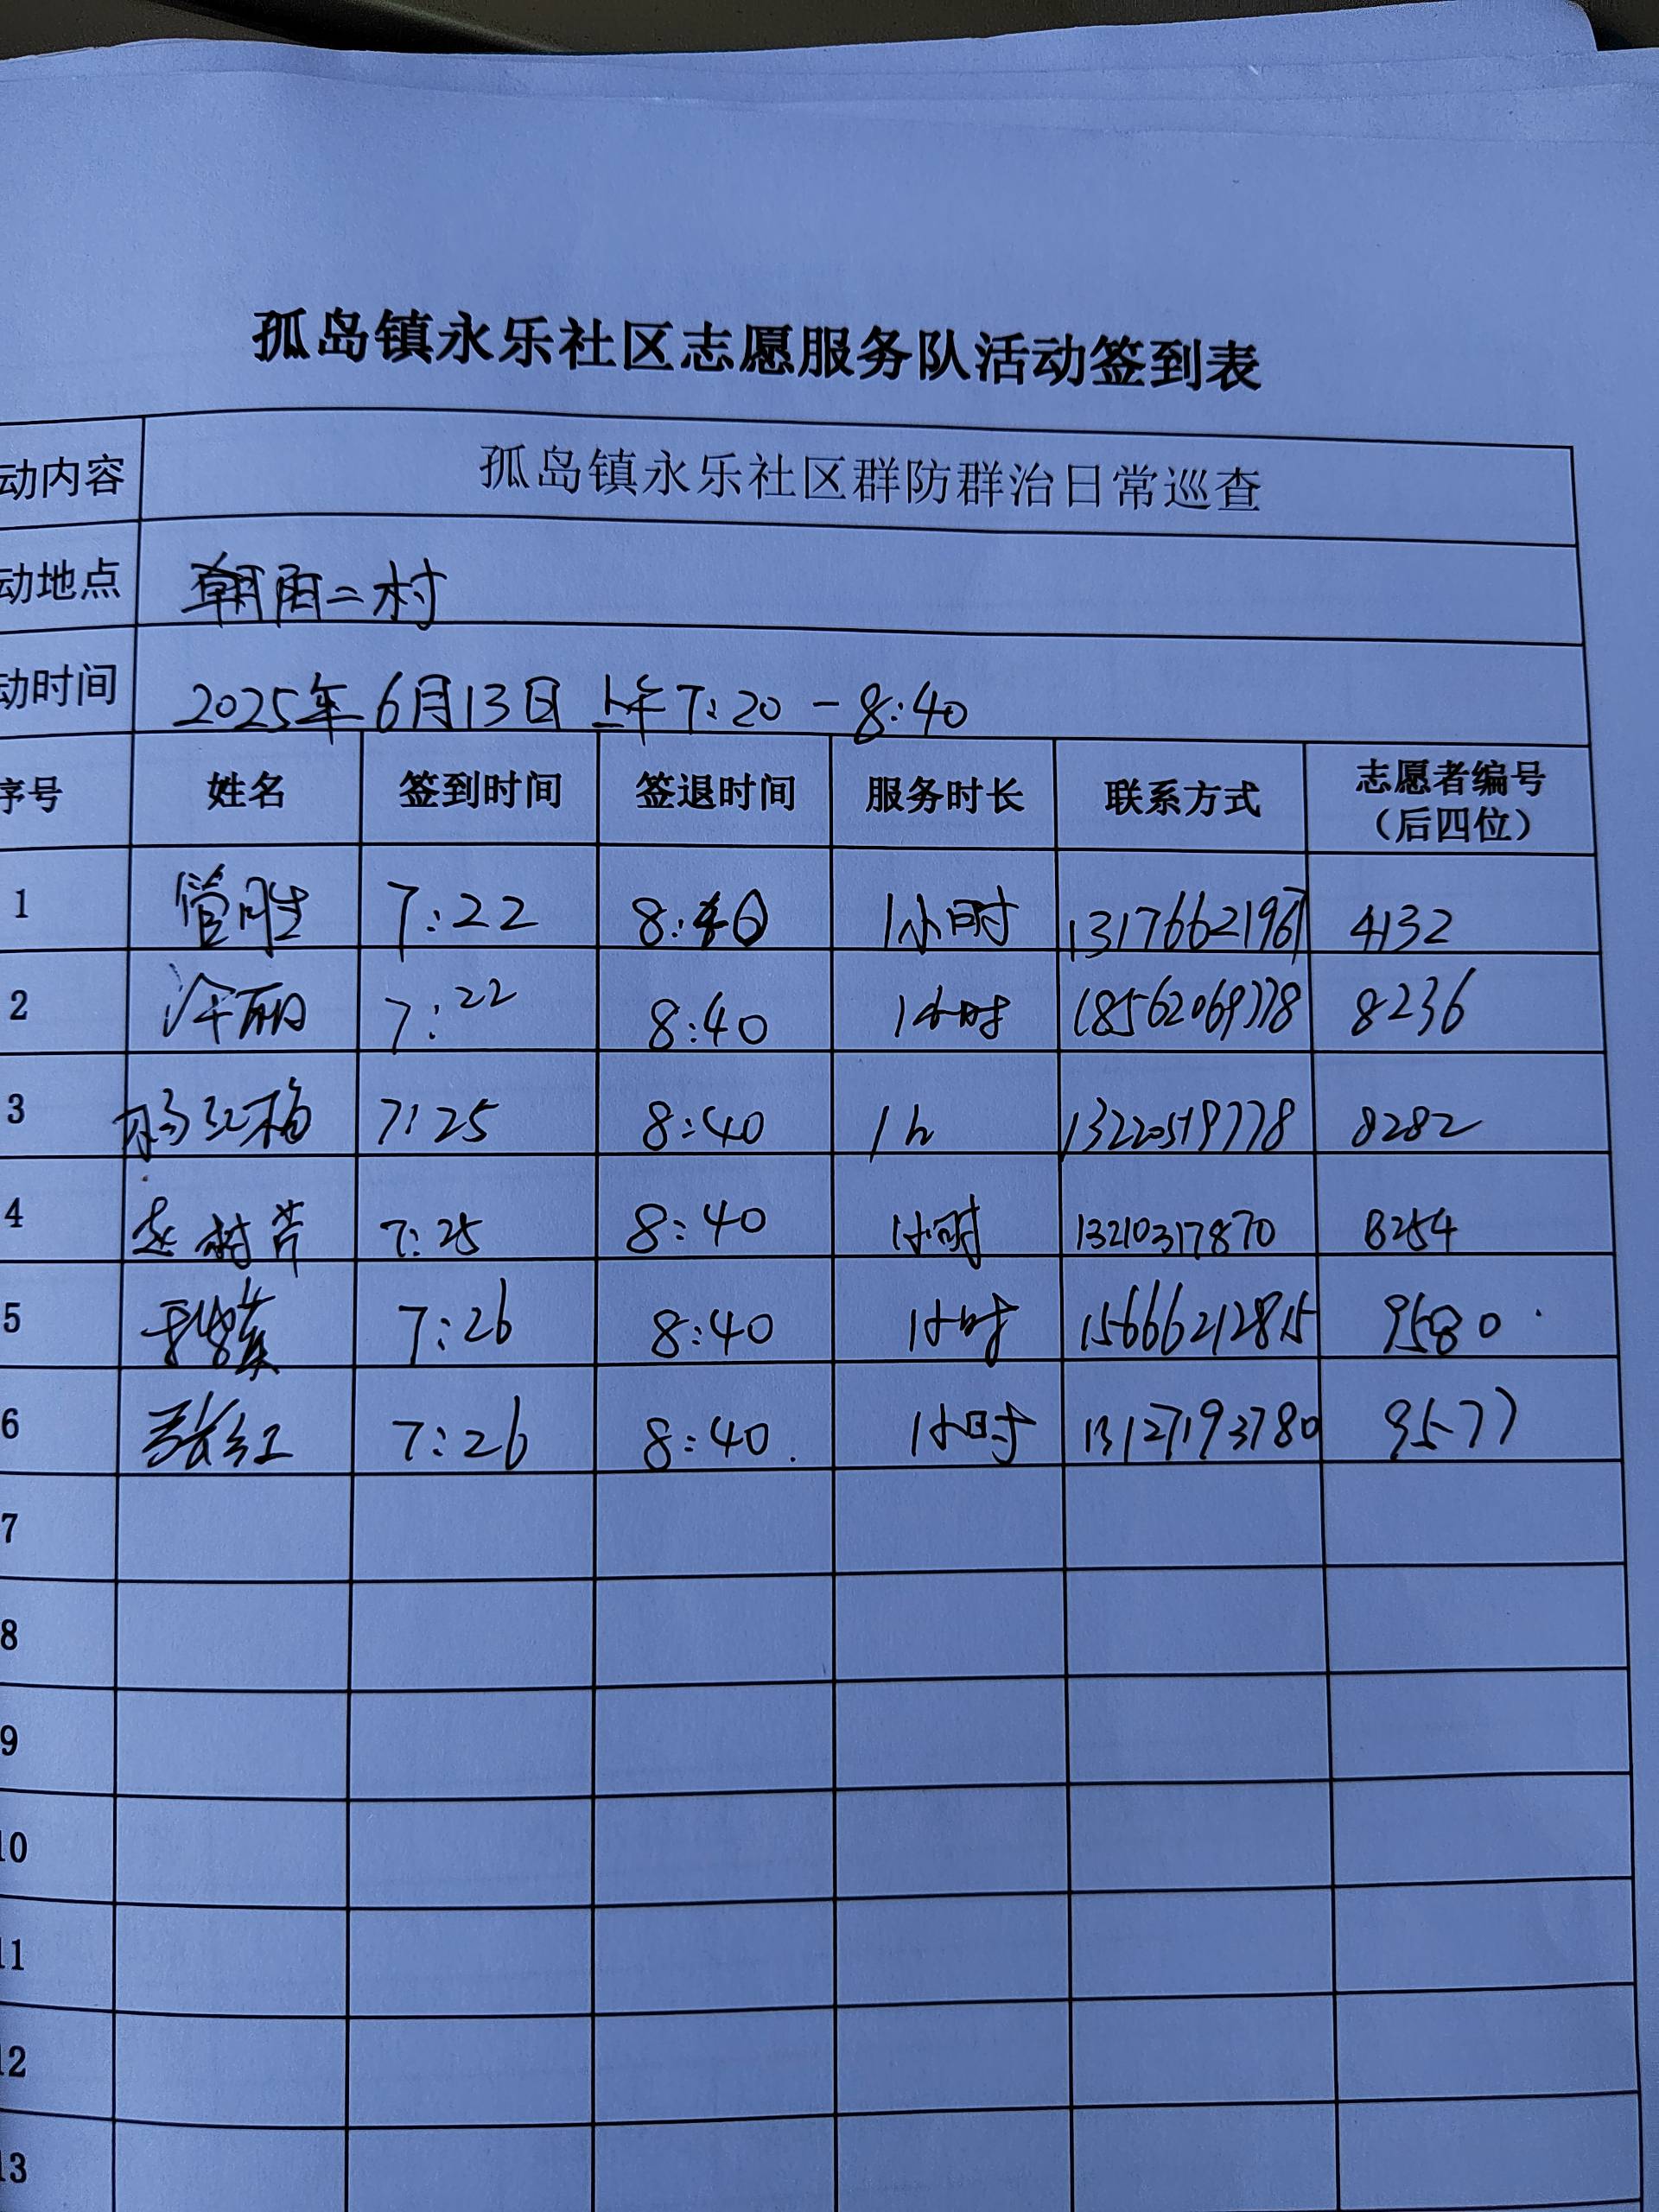 孤岛镇永乐社区志愿服务队活动签到表
动内容 孤岛镇永乐社区群防群治日常巡查
动地点 朝阳二村
动时间 2025年6月13日 上午7:20-8:40
序号 姓名 签到时间 签退时间 服务时长 联系方式 志愿者编号
（后四位）
1 管胜 7:22 8:40 1小时 13176621967 4132
2 7:22 8:40 1小时 18562069778 8236
3 杨红梅 7:25 8:40 1h 13220519778 8282
4 赵树芹 7:25 8:40 1小时 13210317870 8254
5 7:26 8:40 1小时 15666212815 9580
6 张红 7:26 8:40. 1小时 13127193780 9577
7
8
9
10
11
12
13